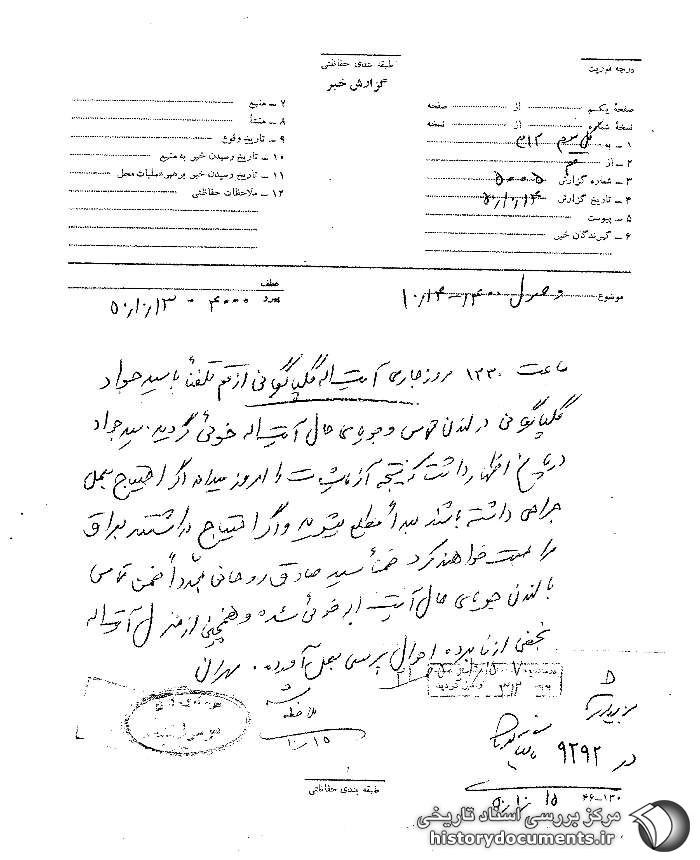 طبقه بندی حفاظتی
گزارش خبر
درجه فوریت
صفحهٔ یکم از صفحه
نسخهٔ شماره از نسخه
۱ – به ۳۱۲
۲ – از
۳ – شماره گزارش
۴ – تاریخ گزارش ۵۰/۱۰/۱۴
۵ – پیوست
۶ – گیرندگان خبر
۷ – منبع
۸ – منشأ
۹ – تاریخ وقوع
۱۰ – تاریخ رسیدن خبر به منبع
۱۱ – تاریخ رسیدن خبر برهبر عملیات محل
۱۲ – ملاحظات حفاظتی
موضوع وصول ۱۴۰۰–۱۰/۱۴
عطف
پیرو ۴۰۰۰ – ۵۰/۱۰/۱۳
ساعت ۱۲۳۰ روز جاری آیت اله گلپایگانی از قم تلفناً با سید جواد
گلپایگانی در لندن تماس و جویای حال آیت اله خوئی گردید. سید جواد
در پاسخ اظهار داشت که نتیجه آزمایشات را امروز میدانند اگر احتیاج بعمل
جراحی داشته باشند بعداً مطلع میشوید و اگر احتیاج نداشتند بعراق
مراجعت خواهند کرد ضمناً سید صادق روحانی مجدداً ضمن تماس
با لندن جویای حال آیت اله خوئی شده و همچنین از منزل آیت اله
نجفی از نامبرده احوال پرسی بعمل آمده. تهران
ملاحظه شد
۱۰/۱۵
۳۱۲
در ۹۲۹۲
۵۰/۱۰/۱۵
۴۶–۱۳۰
طبقه بندی حفاظتی
مرکز بررسی اسناد تاریخی
historydocuments.ir